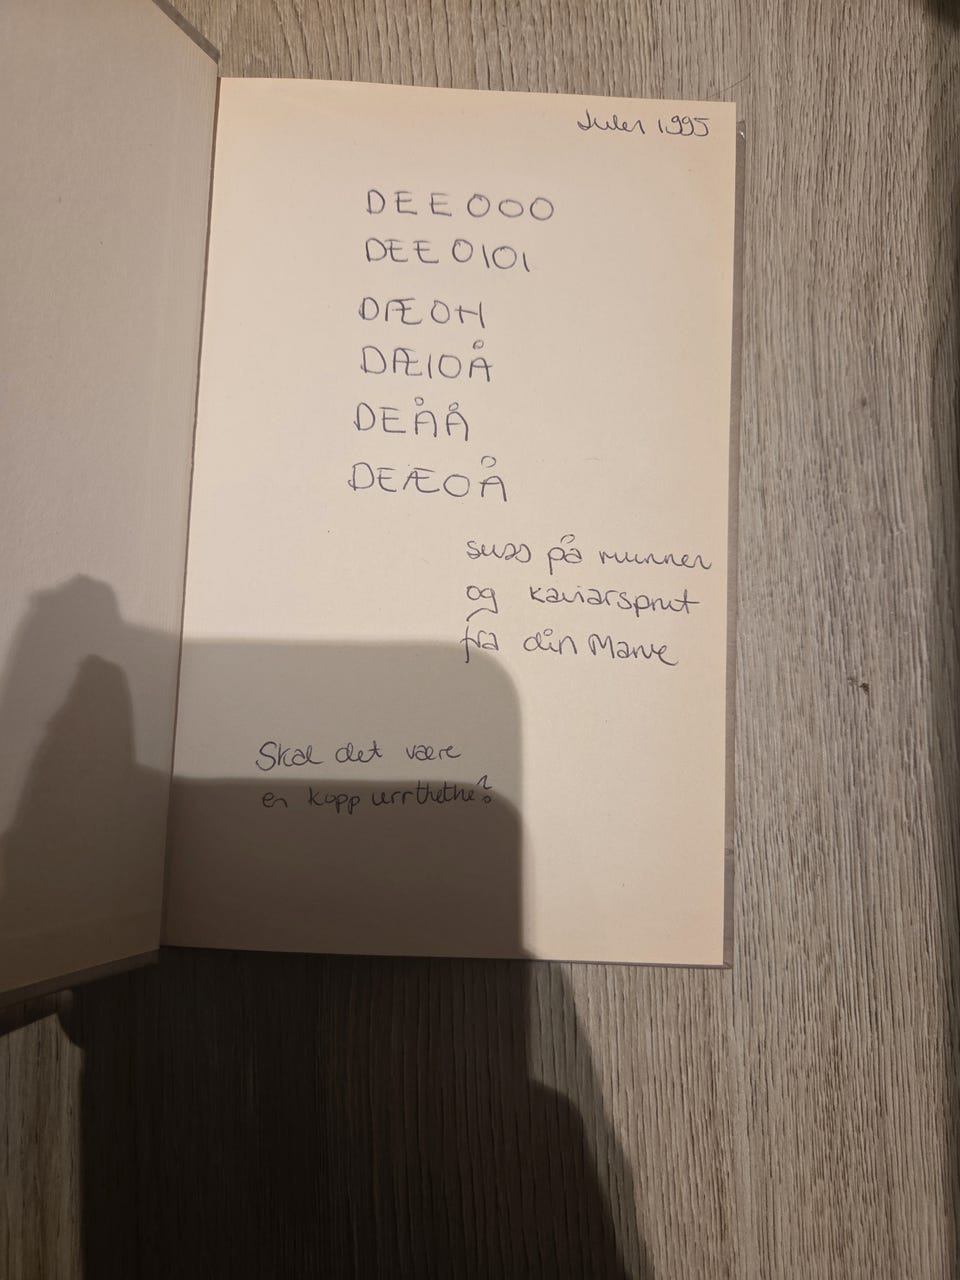 Julen 1995
DEEOOO
DEE O1O1
DÆOH
DÆIOÅ
DEÅÅ
DEÆOÅ
suss på munnen
og kaviarsprut
fra din Marve
Skal det være
en kopp urrthethe?